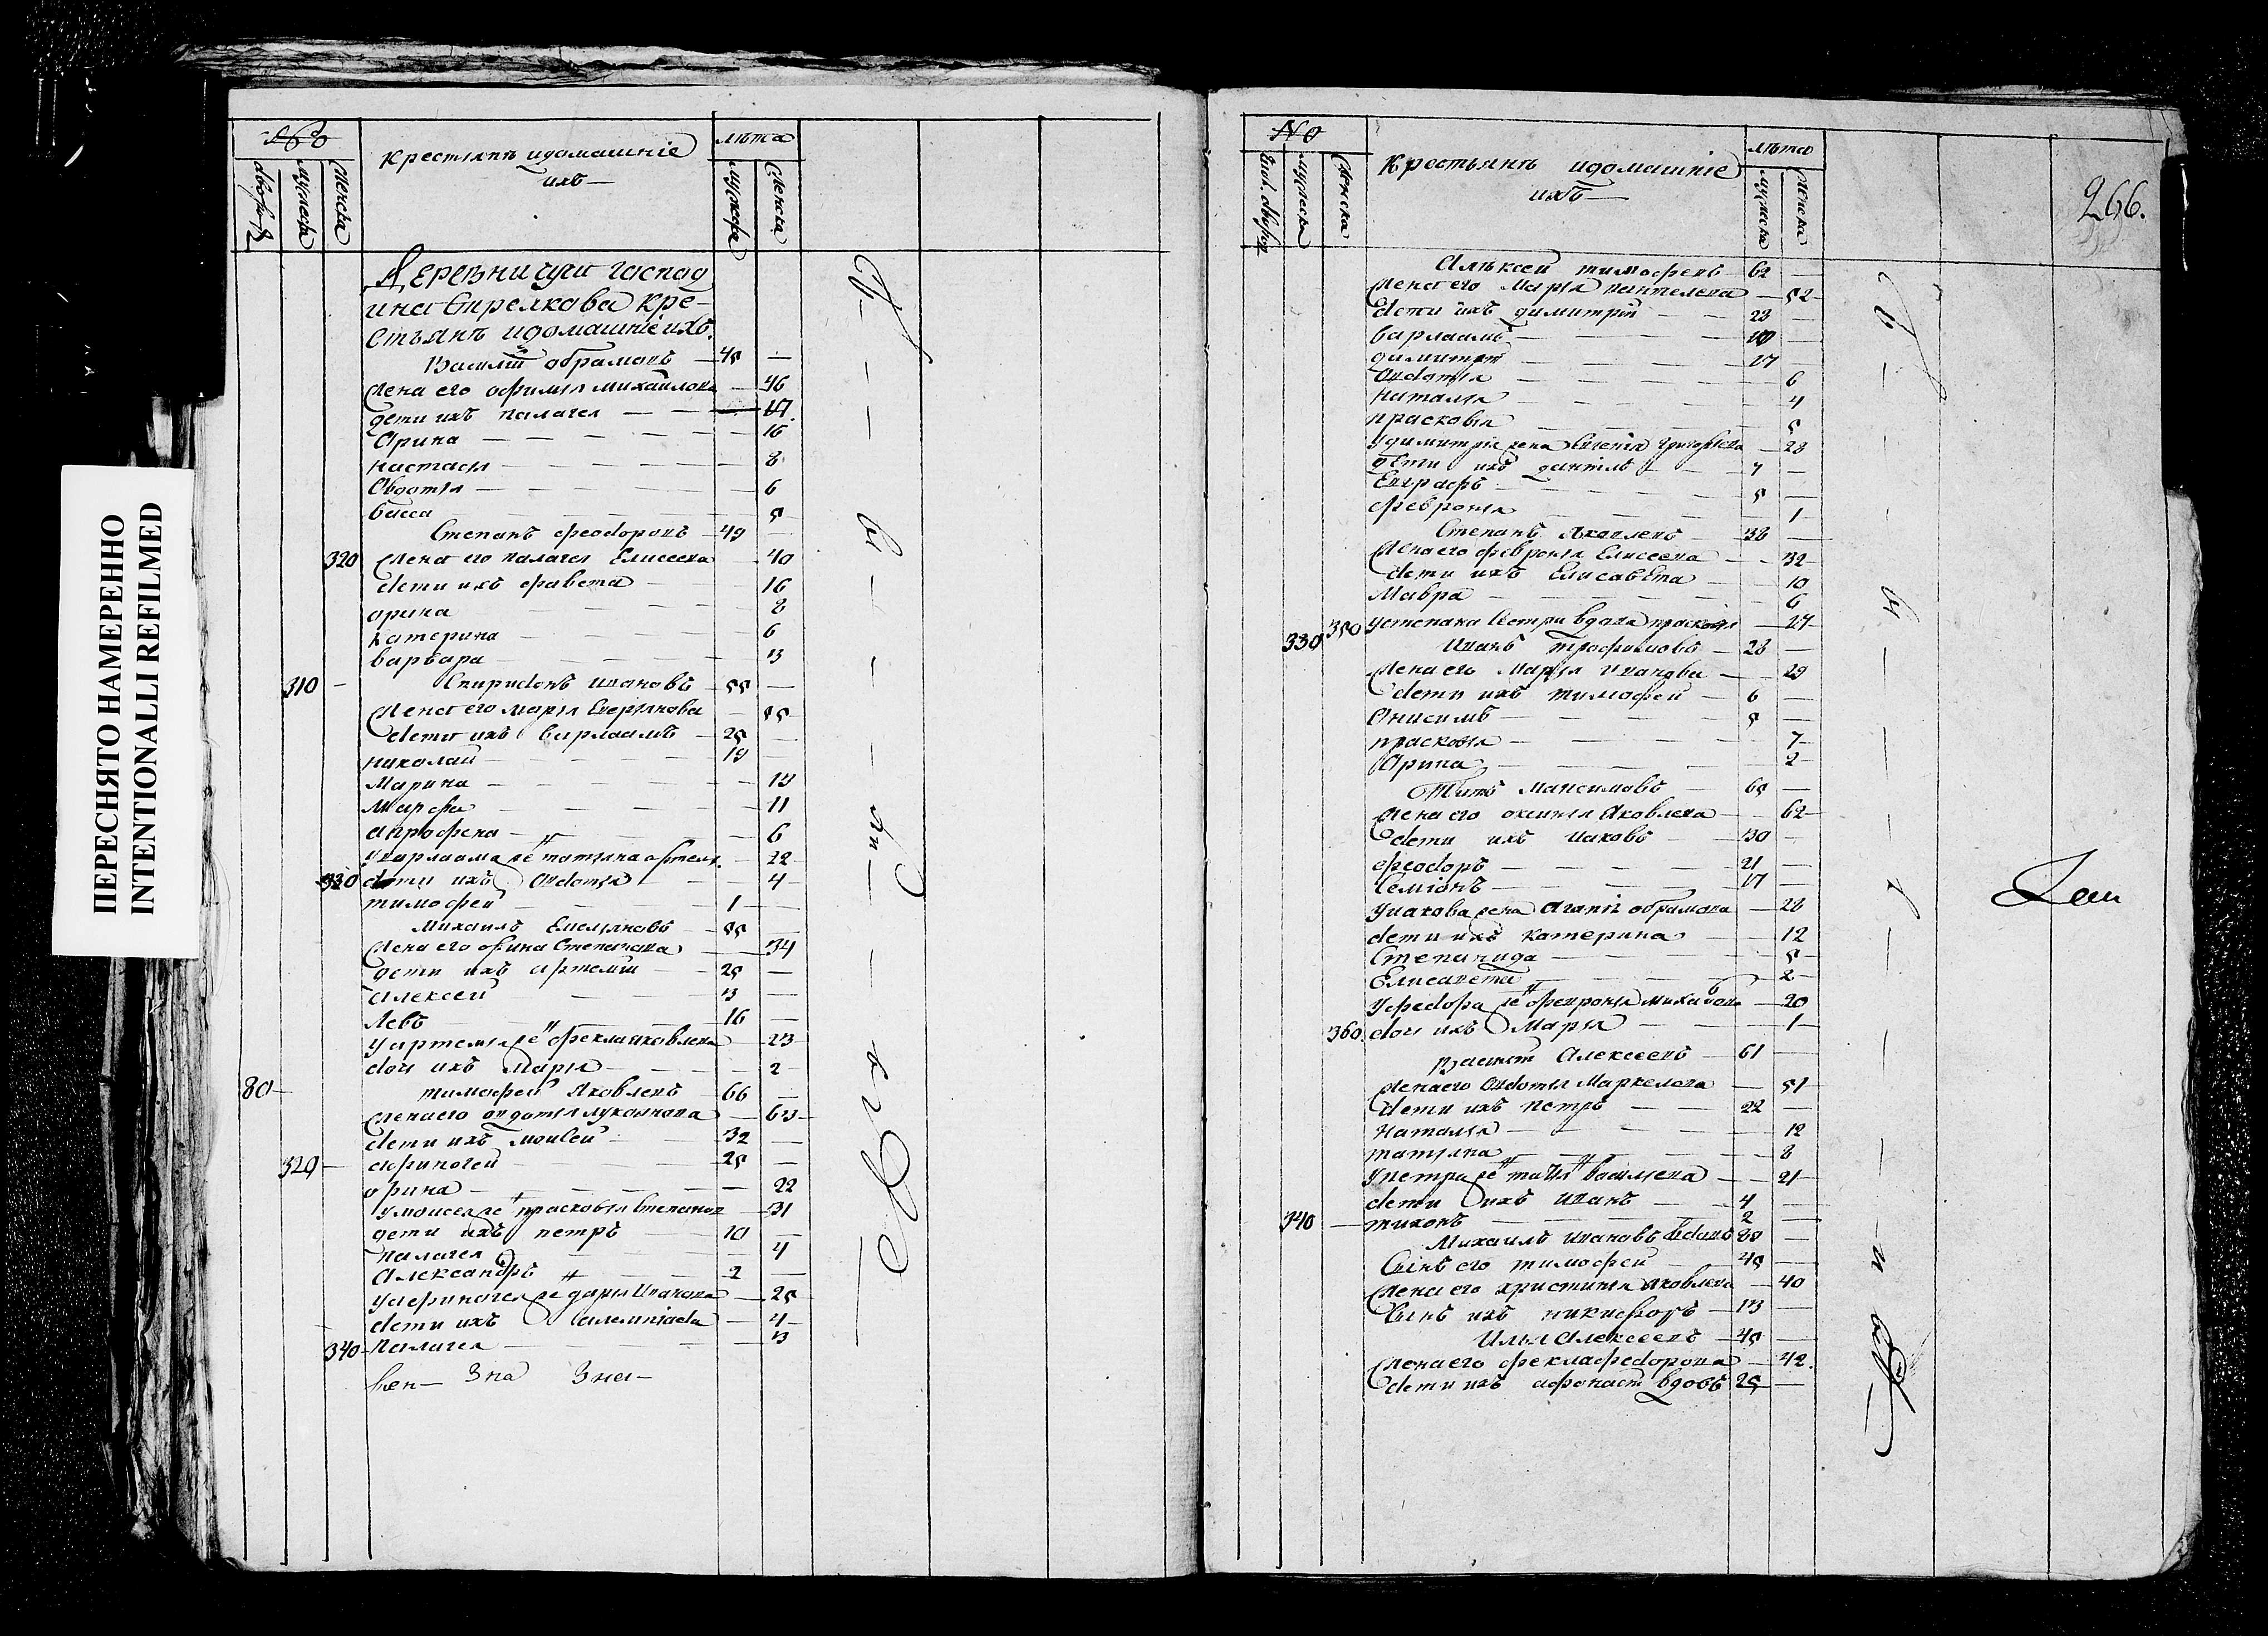 ПЕРЕСНЯТО НАМЕРЕННО
INTENTIONALLI REFILMED
№
крестьянъ идомашніе
ихъ
лѣта
дворовъ
мужеска
женска
мужеска
женска
Деревни
господ
ина Стрелкова кре-
стьянъ идомашніе ихъ
Василій обрамовъ 45 —
жена его офимья михайлова — 46
дети ихъ палагея — 17
Орина — 16
настасья — 8
Овдотья — 6
васса — 5
Степанъ феодоровъ 49 —
320 жена его палагея Елисеева — 40
дети ихъ 16
орина 8
катерина 6
варвара 13
310 Спиридонъ ивановъ 55 —
жена его марья 55
дети ихъ варлаамъ 25 —
николай 19
Марина 19
Марфа — 11
6
уварлаама же татьяна 22
330 дети ихъ Овдотья 4
тимофей 1
михаилъ Емельяновъ 55
жена его Степанова 34
дети ихъ артемий 25 —
алексей 13 —
Левъ 16 —
уартемья же фекла яковлева 23
дочь ихъ марья 2
80 тимофей Яковлевъ 66 —
жена его овдотья лукоянова 63
дети ихъ моисей 32 —
320 афиногей 25 —
орина 22
умоисея же прасковья Степанов 31
дети ихъ петръ 10 —
палагея 4
Александръ 2 —
уафиногея же дарья Иванова 25
дети ихъ 4
340 палагея 13
№
Крестьянъ идомашніе
ихъ
лѣта
мужеска
женска
мужеска
женска
266.
Алексей тимофеевъ 62 —
жена его Марья пантелева — 52
дети ихъ димитрій 28
варлаамъ
димитрій 17
Овдотья 6
наталья 4
прасковья 5
удимитрія жена григорьева 28
дети ихъ данилъ 7
Евграфъ 5
февронья 1
Степанъ Яковлевъ 38 —
жена его февронья Елисеева 32
дети ихъ Елисавета 10
Мавра 6
350 устепана сестра вдова прасковья 27
330 Иванъ трофимовъ 28 —
жена его марья иванова 29
дети ихъ тимофей 6 —
Онисимъ 5 —
прасковья 7
Орина 2
Титъ максимовъ 65 —
жена его оксинья яковлева 62
дети ихъ иаковъ 30 —
феодоръ 21 —
Семіонъ 17 —
уиакова жена обрамова 28
дети ихъ катерина 12
Степанида 5
Елисавета 2
уфедора же февронья 20
360 дочь ихъ Марья 1
Василій Алексеевъ 61 —
жена его овдотья Маркелова 51
дети ихъ петръ 22 —
Наталья 12
татьяна 8
упетра же василиева 21
дети ихъ иванъ 4 —
340 тихонъ 2 —
Михаилъ ивановъ вдовъ
Сынъ его тимофей 45 —
жена его христинья яковлева 40
Сынъ ихъ никифоръ 13 —
Илья Алексеевъ 45 —
жена его фекла федорова 42
дети ихъ афонасій вдовъ 25 —